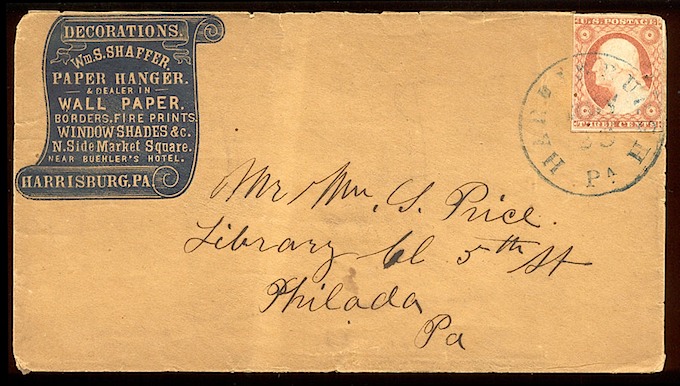 DECORATIONS.
Wm. S. SHAFFER,
PAPER HANGER.
& DEALER IN
WALL PAPER.
BORDERS, FIRE PRINTS,
WINDOW SHADES &c.
N. Side Market Square.
NEAR BUEHLER'S HOTEL.
HARRISBURG, PA.
U.S. POSTAGE
THREE CENTS
PA
Mr Wm. S. Price.
Library 5th St
Philada
Pa